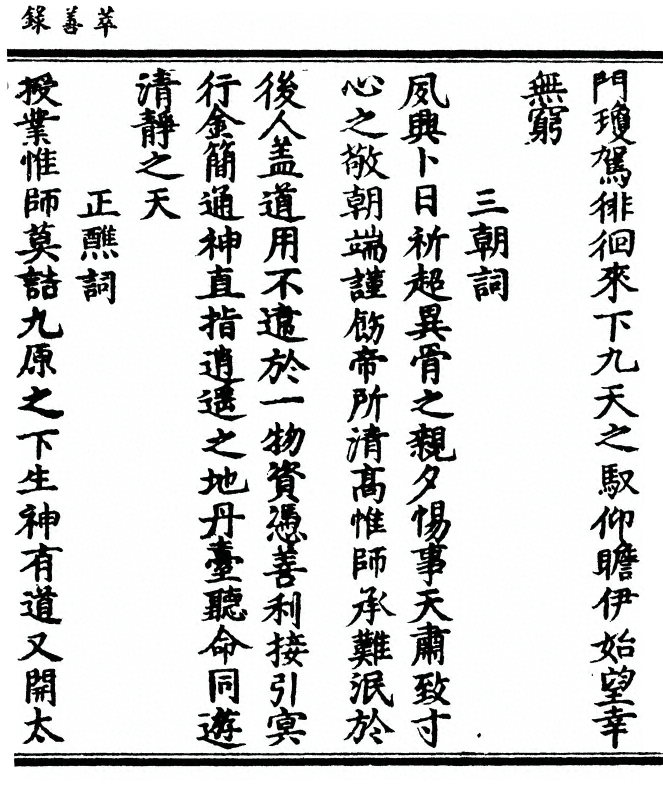 萃善錄
門瓊駕徘徊來下九天之馭仰瞻伊始望幸
無窮
三朝詞
夙興卜日祈超異骨之親夕惕事天肅致寸
心之敬朝端謹飭帝所清高惟師承難泯於
後人盖道用不遺於一物資憑善利接引冥
行金簡通神直指逍遥之地丹臺聽命同遊
清靜之天
正醮詞
授業惟師莫詰九原之下生神有道又開太